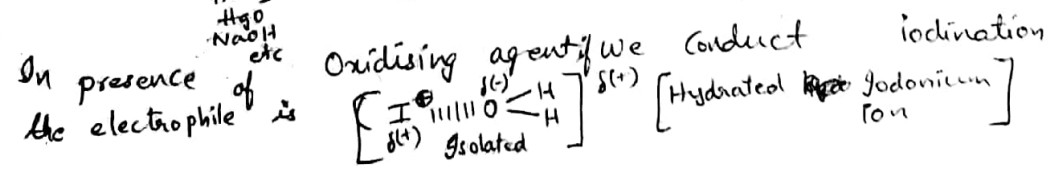 HgO
NaOH
etc
In presence of Oxidising agent if we conduct iodination
the electrophile is [I⊕ıııııııO<H H]δ(+) [Hydrated Iodonium Ion]
δ(+) δ(-) Isolated